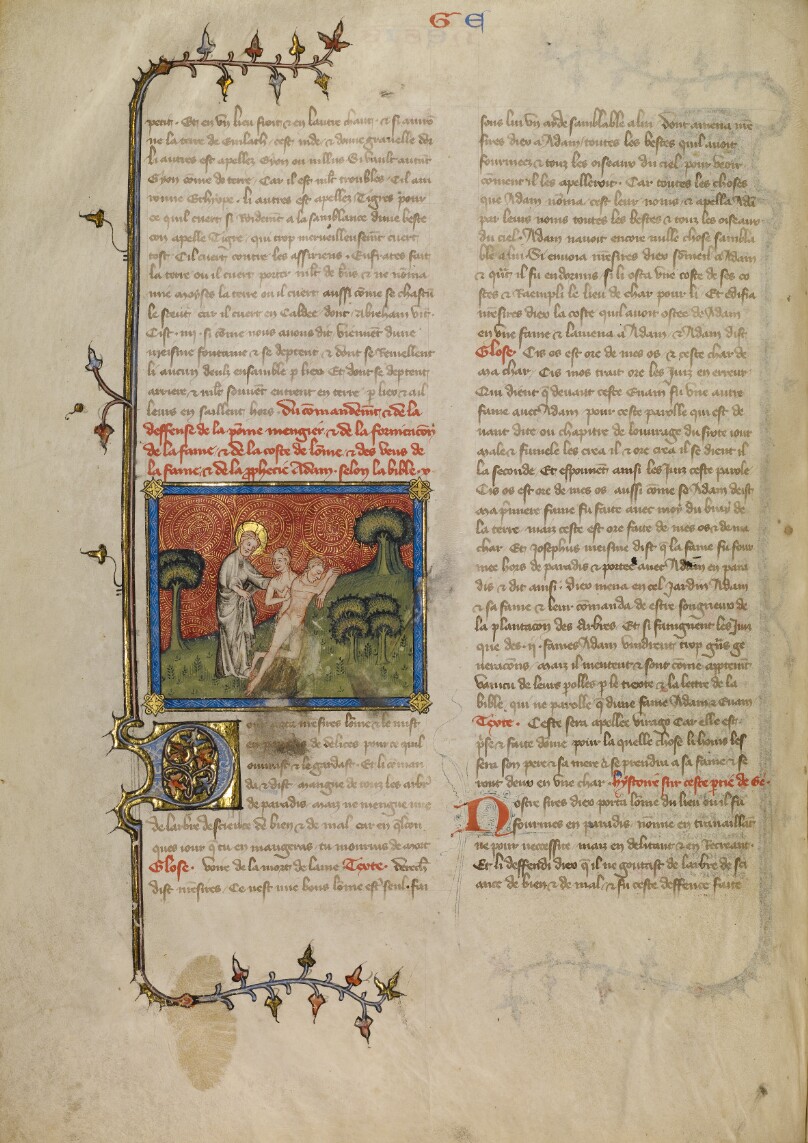 GE
petit. Et en vn lieu siont & en lautre chant. & si auiro
ne la terre de Euilach. cest inde & donne grauelle dor
li autres est apellez Gyon ou nillus. Si vault autant
Gyon come de terre. Car il est mlt troubles. Cil aui
ronne Ethyope. li autres est apellez Tigres pour
ce quil cuert si roidemt a la samblance dune beste
con apelle Tigre. qui trop merueilleusemt cuert
tost. Cil cuert contre les assiriens. Eufrates suit
la terre ou il cuert porter mlt de biens & ne noma
mie moyses la terre ou il cuert aussi come se chascu
le seust car il cuert en Caldee dont Abreham vit.
Cist .iiii. si come nous auons dit viennet dune
meisme fontaine & se deptent. & dont se remellent
li aucun deulz ensamble p lieu. Et dont se deptent
arriere. & mlt souuet entrent en terre. p lieu & ail
leurs en saillent hors. Du comandemt & de la
deffense de la pome mengier. & de la formacion
de la fame. & de la coste de lome. & des veus de
la fame. & de la prophecie Adam. selon la bible.
mesires lome & le mist
en paradis de delices pour ce quil
ouurast & le gardast. Et li coman
da & dist. mangue de touz les arbres
de paradis. maiz ne mengue mie
de larbre de science de bien & de mal. car en qlcon
ques iour q tu en mangeras. tu mourras de mort
Glose. voire de la mort de lame. Texte. derech
dist mesires. Ce nest mie bons lome est seul. fai
sons lui vn aide samblable a lui. Dont amena me
sires dieu a Adam toutes les bestes quil auoit
fourmez & touz les oiseaux du ciel pour veoir
coment il les apelleroit. Car toutes les choses
que Adam noma. cest leur noms. & apella Ada
par leurs noms toutes les bestes & touz les oiseaux
du ciel. Adam nauoit encore nulle chose sambla
ble a lui. Si enuoia mesires dieu someil a Adam
& qut il fu endormis. si li osta vne coste de ses co
stes & raempli le lieu de char pour li. Et edifia
mesires dieu la coste quil auoit ostee de Adam
en vne fame & lamena a Adam. & Adam dist
Glose. Cis os est ore de mes os. & ceste char de
ma char. Cis mos trait ore les Juiz en erreur.
Qui dient q deuant ceste Euam fu vne autre
fame auec Adam pour ceste parolle qui est de
uant dite ou chapitre de louurage du siste iour
masle & fumele les crea il & ore crea il se dient il
la seconde. Et esponnent ainsi les Juis ceste parole
Cis os est ore de mes os. aussi come se Adam deist
ma pmiere fame fu faite auec moy du limo de
la terre. maiz ceste est ore faite de mes os & de ma
char. Et Josephus meisme dist q la fame fu four
mee hors de paradis & portee auec Adam en para
dis & dit ainsi. dieu mena en cel jardin Adam
& sa fame & leur comanda de estre songneux de
la plantacon des arbres. Et si faingnent les Juis
que des .ii. fames Adam vindrent trop gns ge
neracons. maiz il mentent & sont come apptemt
vaincu de leurs polles p le texte & la lettre de la
bible. qui ne parolle q dune fame Adam & Euam
Texte. Ceste sera apellee virago car elle est
pse & faite dome pour la quelle chose li homs les
sera son pere & sa mere & se prendra a sa fame & se
ront deux en vne char. hystoire sur ceste ptie de Ge.
Nostre sires dieu porta lome du lieu ou il fu
fourmes en paradis. nonne en trauaillat
ne pour necessite. maiz en delitant & en recreant.
Et li deffendi dieu q il ne goustast de larbre de sci
ance de bien & de mal. & fu ceste deffence faite